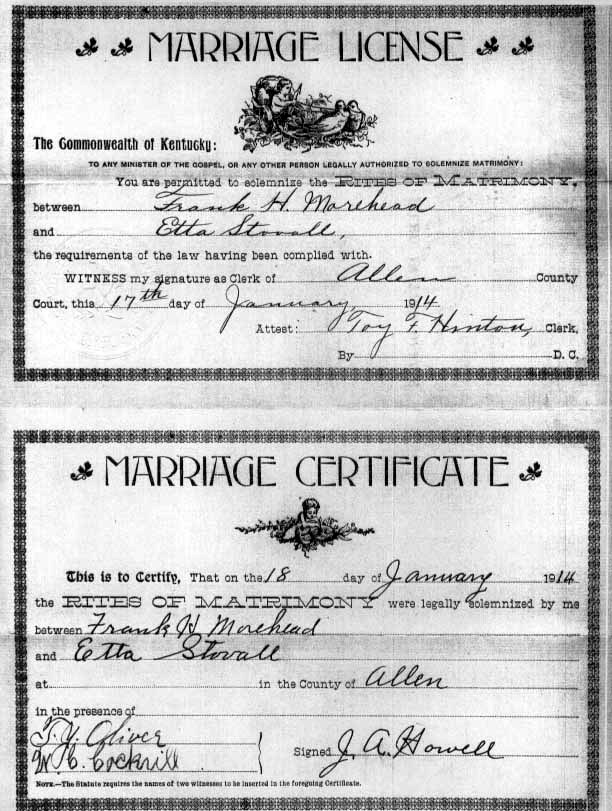 MARRIAGE LICENSE
The Commonwealth of Kentucky:
TO ANY MINISTER OF THE GOSPEL, OR ANY OTHER PERSON LEGALLY AUTHORIZED TO SOLEMNIZE MATRIMONY:
You are permitted to solemnize the RITES OF MATRIMONY,
between Frank H. Morehead
and Etta Stovall,
the requirements of the law having been complied with.
WITNESS my signature as Clerk of Allen County
Court, this 17th day of January, 1914
Attest: Toy F. Hinton, Clerk,
By D. C.
MARRIAGE CERTIFICATE
This is to Certify, That on the 18 day of January 1914
the RITES OF MATRIMONY were legally solemnized by me
between Frank H Morehead
and Etta Stovall
at in the County of Allen
in the presence of
T. Y. Oliver
W. C. Cockrill
Signed J. A. Howell
NOTE.—The Statute requires the names of two witnesses to be inserted in the foregoing Certificate.